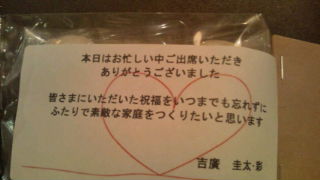 本日はお忙しい中ご出席いただき
ありがとうございました
皆さまにいただいた祝福をいつまでも忘れずに
ふたりで素敵な家庭をつくりたいと思います
吉廣　圭太・彩